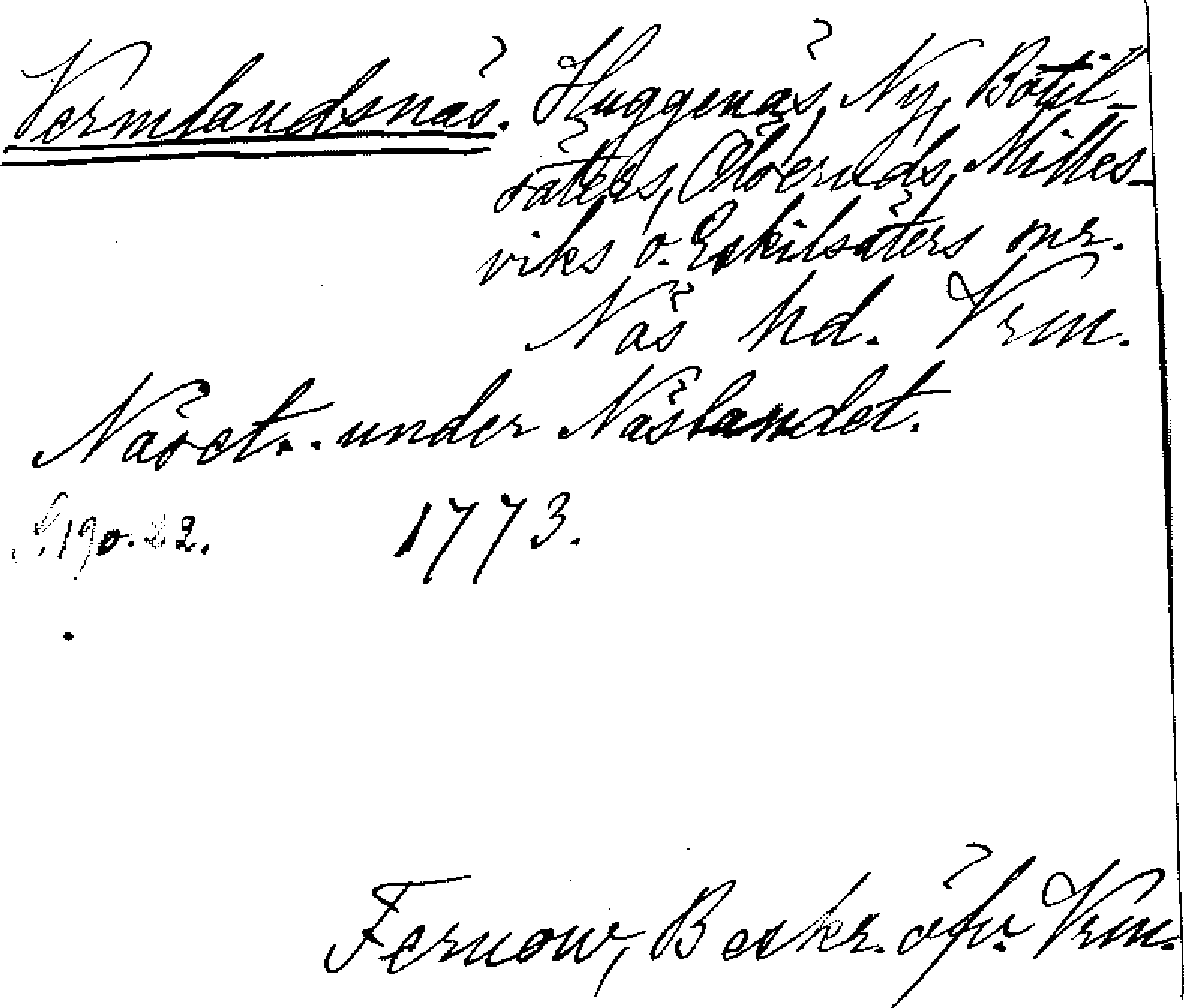 Vermlandsnäs. Huggenäs, Ny, Botil-
säters, Ölseruds, Milles-
viks o. Eskilsäters snr.
Näs hd. Vrm.
Näset.. under Näslandet.
S. 190. 1773.
Fernow, Beskr. öfv. Vrm.